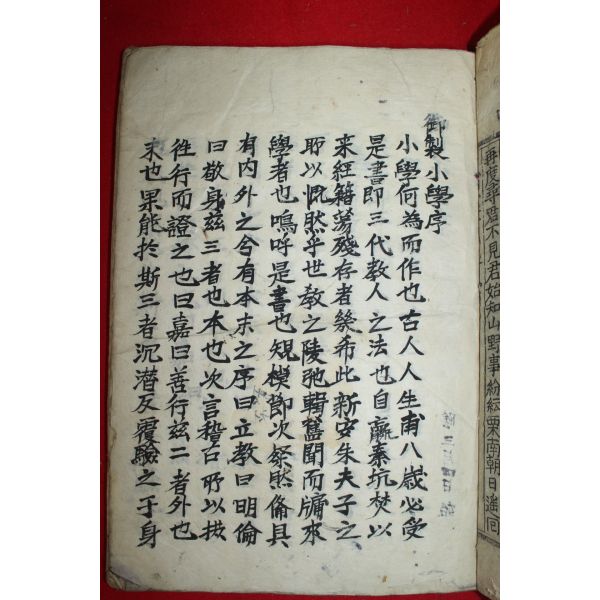 再度尋不見君始知山野事紛紜南朝日
御製小學序
小學何為而作也古人人生甫八歲必受
是書即三代教人之法也自嬴秦坑焚以
来經籍蕩殘存者幾希此新安朱夫子之
所以慨然乎世教之陵弛輯舊聞而牖來
學者也嗚呼是書也規模節次粲然備具
有内外之分有本末之序曰立教曰明倫
曰敬身玆三者也本也次言稽古所以摭
徃行而證之也曰嘉曰善行玆二者外也
末也果能於斯三者沉潛反覆驗之于身